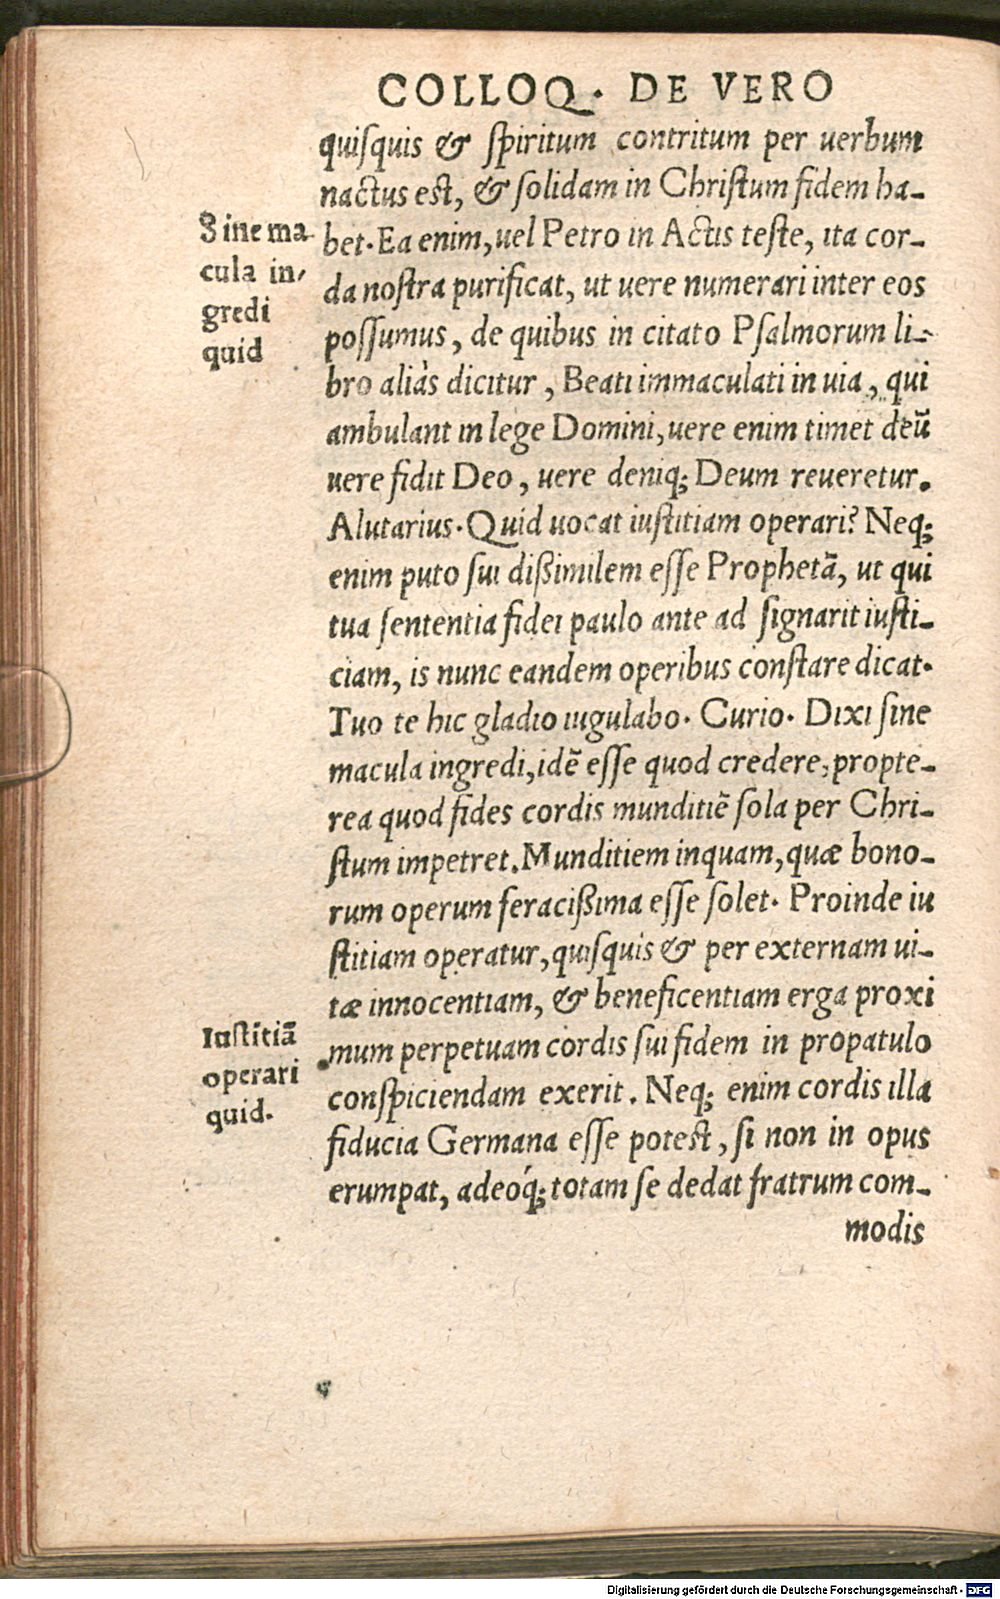 COLLOQ. DE VERO
quiſquis & ſpiritum contritum per uerbum
nactus eſt, & ſolidam in Chriſtum fidem ha-
bet. Ea enim, uel Petro in Actis teſte, ita cor-
da noſtra purificat, ut uere numerari inter eos
poſſumus, de quibus in citato Pſalmorum li-
bro aliàs dicitur, Beati immaculati in uia, qui
ambulant in lege Domini, uere enim timet deū
uere fidit Deo, uere deniq; Deum reueretur.
Alutarius. Quid uocat iuſtitiam operari? Neq;
enim puto ſui dißimilem eſſe Prophetā, ut qui
tua ſententia fidei paulo ante ad ſignarit iuſti-
ciam, is nunc eandem operibus conſtare dicat.
Tuo te hic gladio iugulabo. Curio. Dixi ſine
macula ingredi, idē eſſe quod credere, propte-
rea quod fides cordis munditiē ſola per Chri-
ſtum impetret. Munditiem inquam, quæ bono-
rum operum feracißima eſſe ſolet. Proinde iu
ſtitiam operatur, quiſquis & per externam ui-
tæ innocentiam, & beneficentiam erga proxi
mum perpetuam cordis ſui fidem in propatulo
conſpiciendam exerit. Neq; enim cordis illa
fiducia Germana eſſe poteſt, ſi non in opus
erumpat, adeóq; totam ſe dedat fratrum com-
modis
Sine ma-
cula in-
gredi
quid
Iuſtitiā
operari
quid.
Digitalisierung gefördert durch die Deutsche Forschungsgemeinschaft - DFG